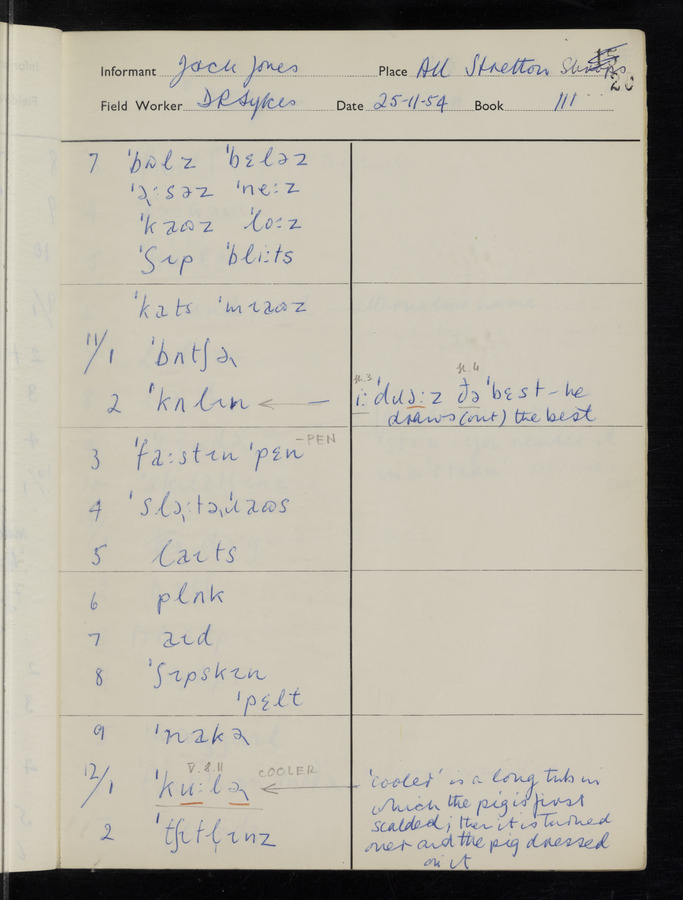 Informant Jack Jones Place All Stretton Shrops 20
Field Worker D R Sykes Date 25-11-54 Book III
7 'bʊlz 'bɛləz
'ɚ:səz 'ne:z
'kaʊz 'lo:z
'ʃɪp 'bli:ts
'kats 'mɪaʊz
11/1 'bʌtʃɚ
2 'kʌlɪn ← — i: 'dɹɔ:z ðə 'bɛst – he
n.3 n.4
draws (out) the best
3 'fa:stɪn 'pɛn – PEN
4 'slɔ:tɚ,ɹaʊs
5 laɪts
6 plʌk
7 aɪd
8 'ʃɪpskɪn
'pɛlt
9 'nakɚ
V.8.11
12/1 'ku:lɚ ← COOLER 'cooler' is a long tub in
which the pig is first
scalded; then it is turned
over and the pig dressed
on it
2 'tʃɪtlɪnz